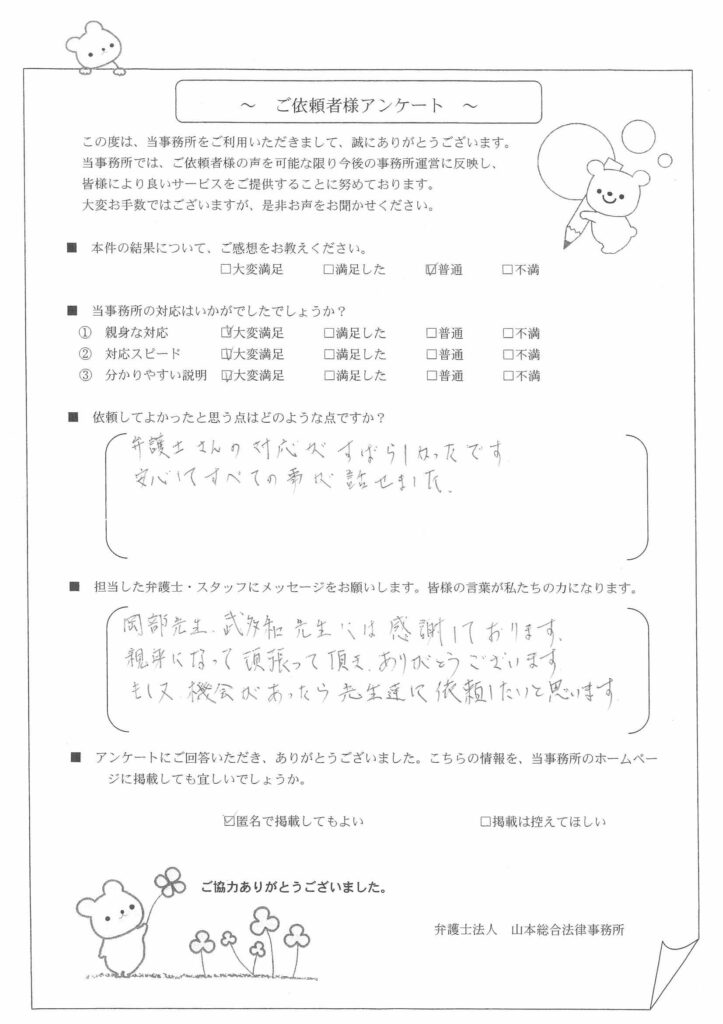 ～ ご依頼者様アンケート ～
この度は、当事務所をご利用いただきまして、誠にありがとうございます。
当事務所では、ご依頼者様の声を可能な限り今後の事務所運営に反映し、
皆様により良いサービスをご提供することに努めております。
大変お手数ではございますが、是非お声をお聞かせください。
■ 本件の結果について、ご感想をお教えください。
□大変満足 □満足した ☑普通 □不満
■ 当事務所の対応はいかがでしたでしょうか？
① 親身な対応 ☑大変満足 □満足した □普通 □不満
② 対応スピード ☑大変満足 □満足した □普通 □不満
③ 分かりやすい説明 ☑大変満足 □満足した □普通 □不満
■ 依頼してよかったと思う点はどのような点ですか？
弁護士さんの対応がすばらしかったです.
安心してすべての事が話せました.
■ 担当した弁護士・スタッフにメッセージをお願いします。皆様の言葉が私たちの力になります。
岡部先生、武多和先生には感謝しております.
親平になって頑張って頂き、ありがとうございます
もし又、機会があったら先生達に依頼したいと思います.
■ アンケートにご回答いただき、ありがとうございました。こちらの情報を、当事務所のホームペー
ジに掲載しても宜しいでしょうか。
☑匿名で掲載してもよい □掲載は控えてほしい
ご協力ありがとうございました。
弁護士法人 山本総合法律事務所